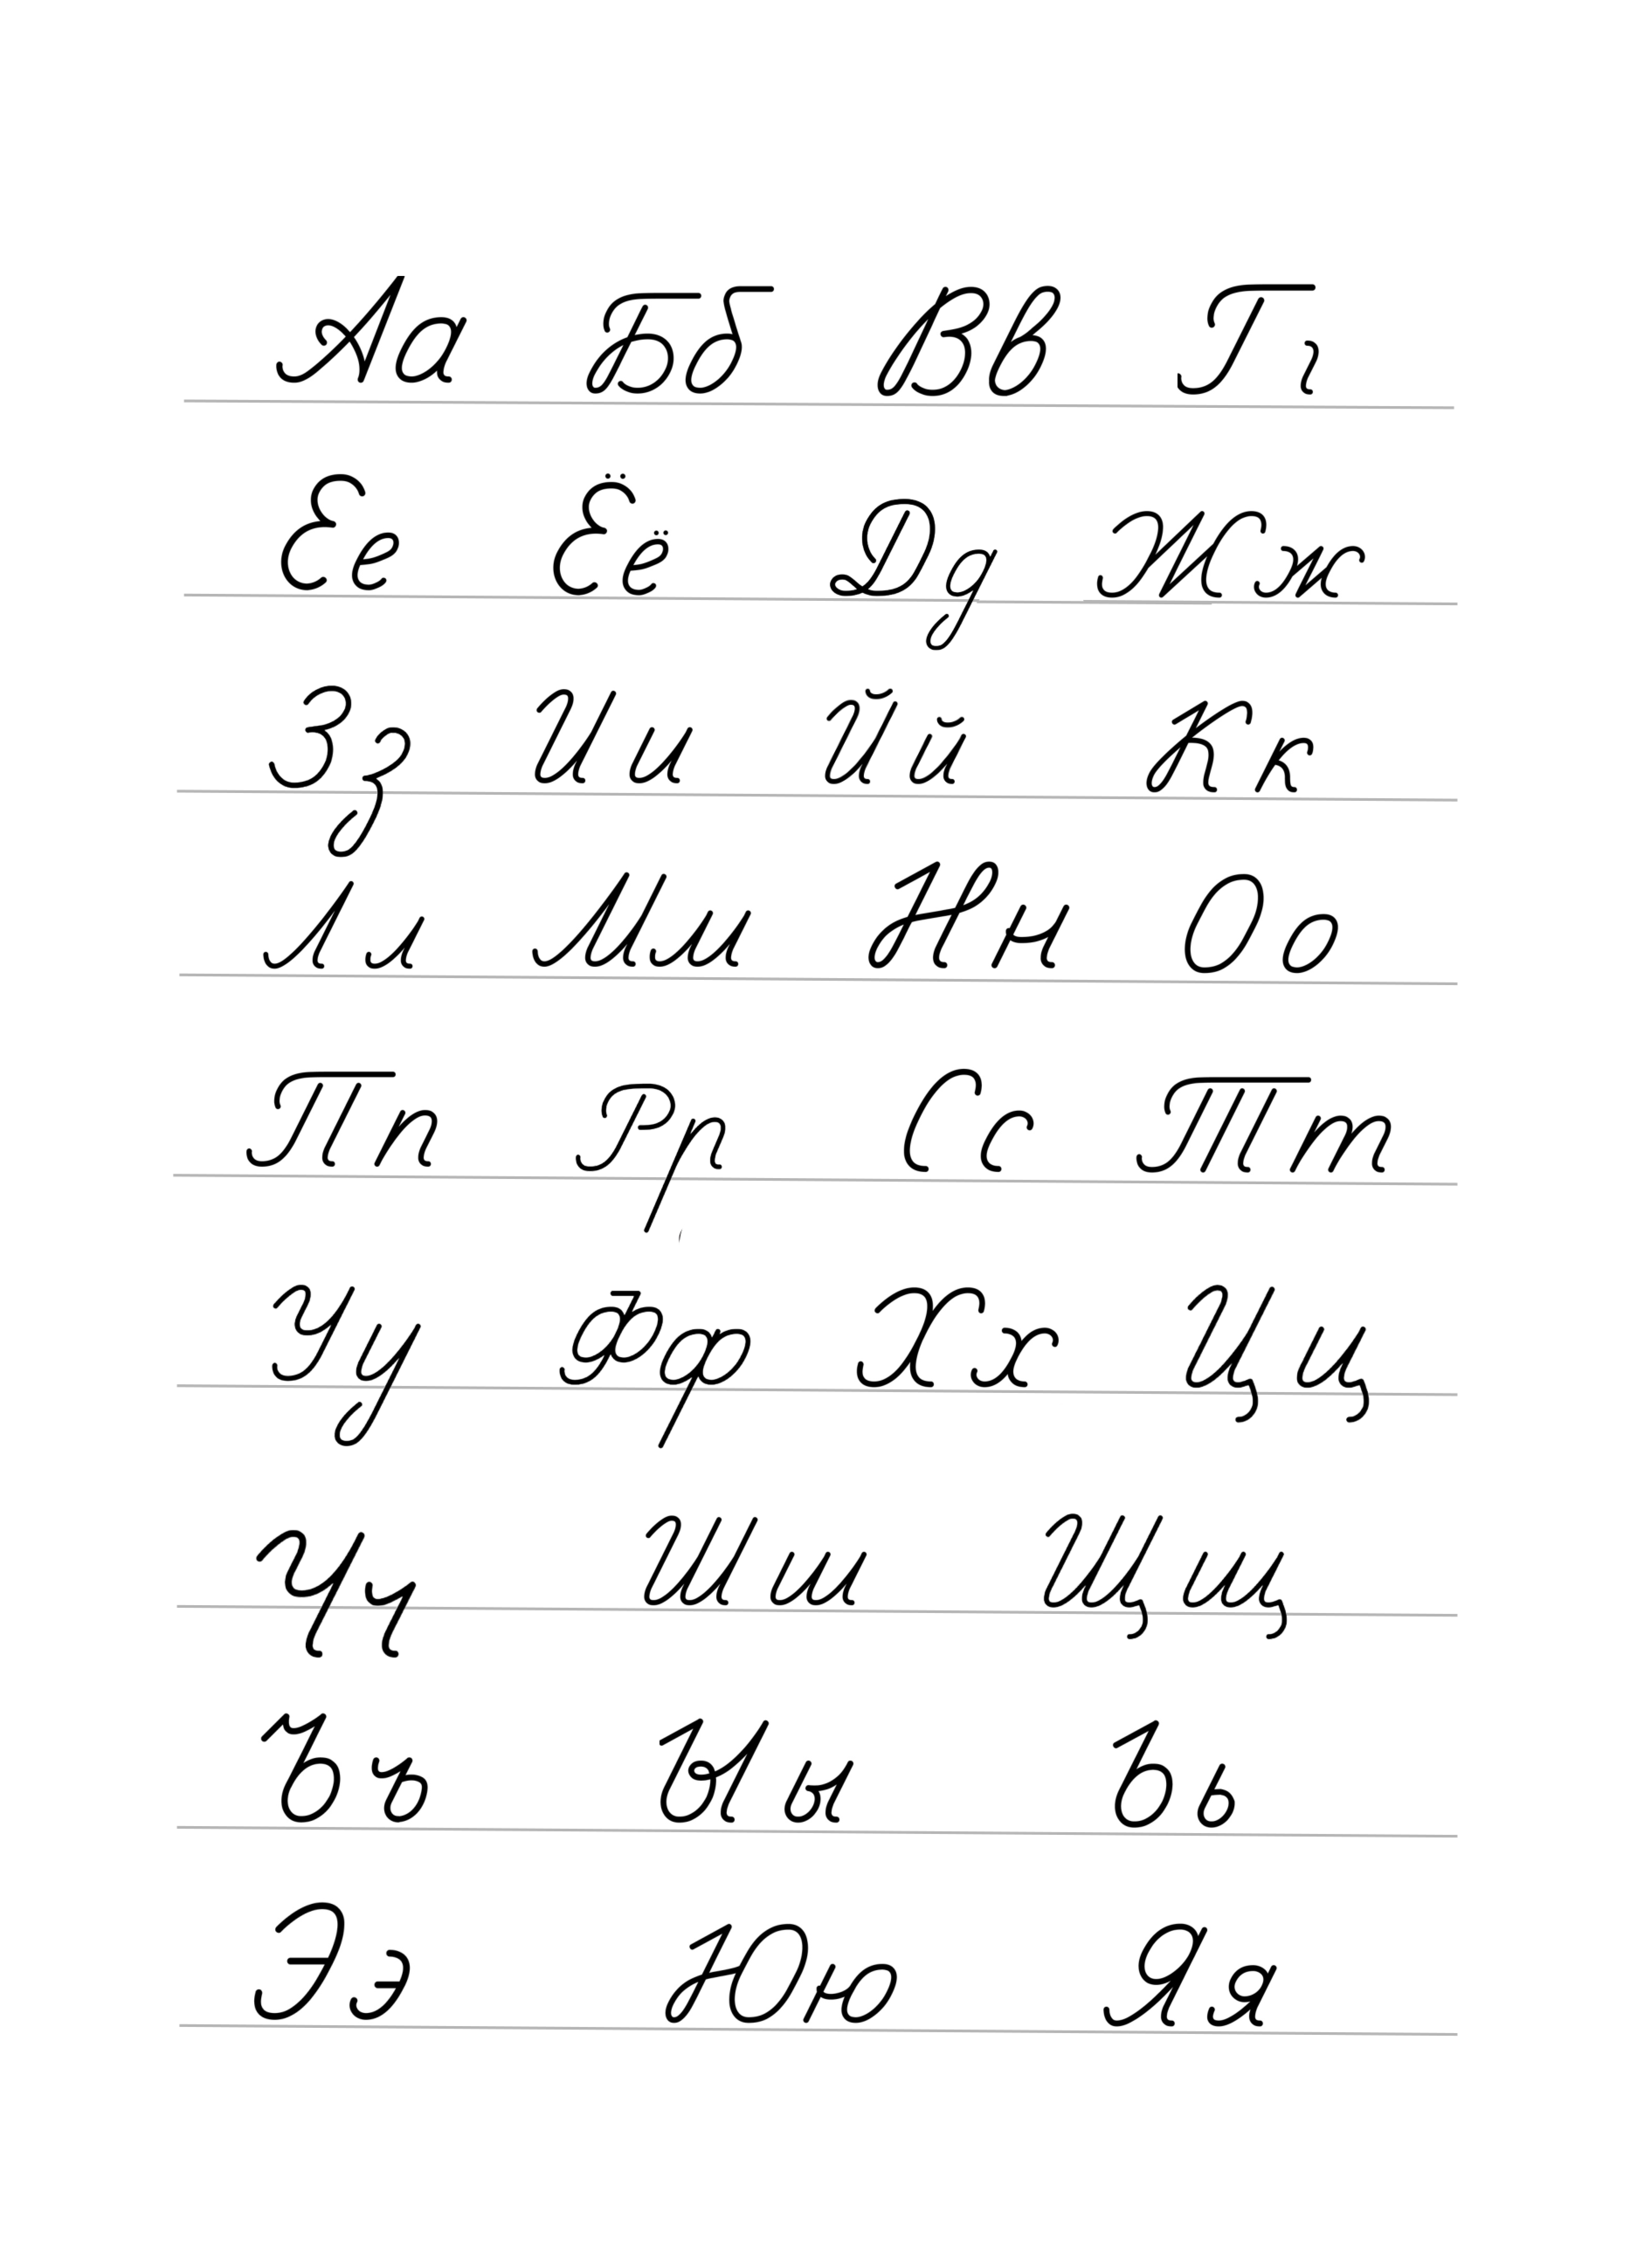 Аа Бб Вв Гг
Ее Ёё Дд Жж
Зз Ии Йй Кк
Лл Мм Нн Оо
Пп Рр Сс Тт
Уу Фф Хх Цц
Чч Шш Щщ
Ъъ Ыы Ьь
Ээ Юю Яя